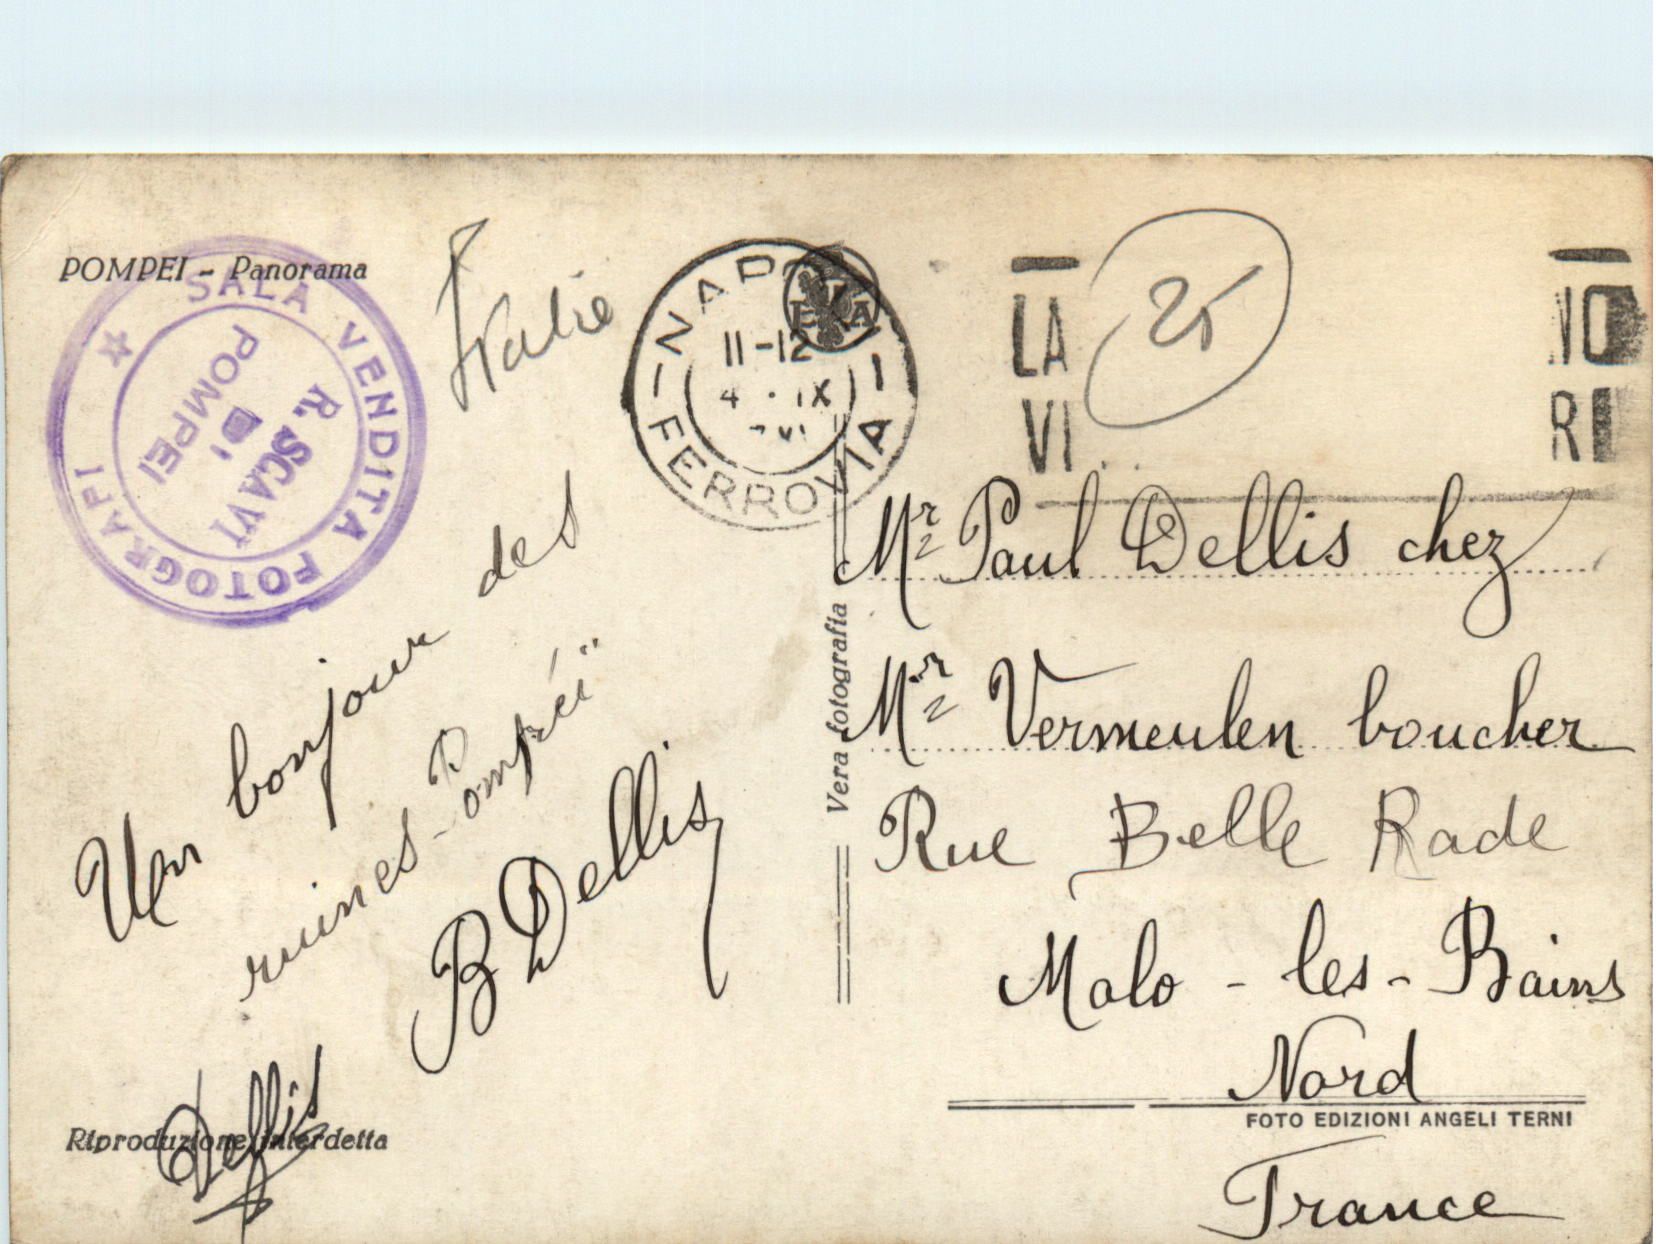 POMPEI - Panorama
SALA VENDITA FOTOGRAFI
R. SCAVI
DI
POMPEI
Italie
NAPOLI
FERROVIA
11-12
4 · IX
LA
VI
NO
RI
25
Un bonjour des
ruines - Pompéï
B Dellis
Dellis
Riproduzione interdetta
Vera fotografia
Mr Paul Dellis chez
Mr Vermeulen boucher
Rue Belle Rade
Malo - les - Bains
Nord
FOTO EDIZIONI ANGELI TERNI
France